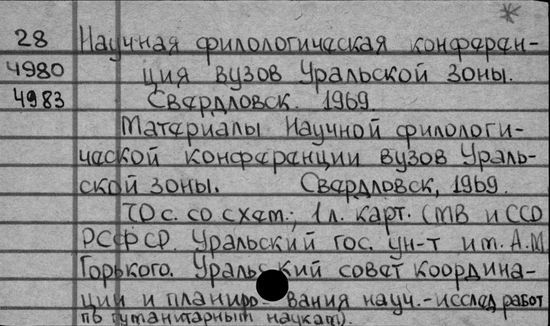 28 Научная филологическая конферен-
4980 ция вузов Уральской зоны.
4983 Свердловск. 1969.
Материалы Научной филологи-
ческой конференции вузов Ураль-
ской зоны. Свердловск, 1969.
70 с. со схем.; 1 л. карт. (МВ и ССО
РСФСР. Уральский гос. ун-т им. А.М.
Горького. Уральский совет координа-
ции и планиро- вания науч.-исслед работ
по гуманитарным наукам).